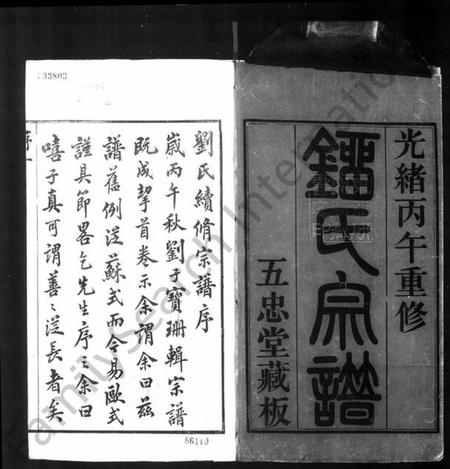 光緒丙午重修
鐂氏宗譜
五忠堂藏板
劉氏續修宗譜序
歲丙午秋劉子寶珊輯宗譜
既成挈首卷示余謂余曰茲
譜舊例從蘇式而今易歐式
謹具節畧乞先生序之余曰
嘻子真可謂善善從長者矣
33803
86119
FamilySearch International